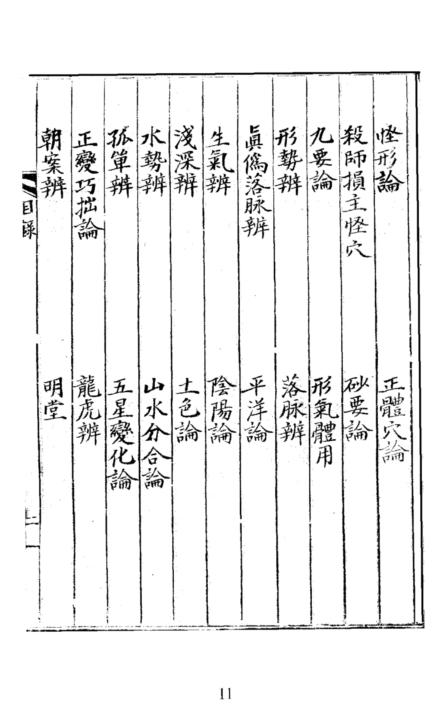 怪形論　正體穴論
殺師損主怪穴　砂要論
九要論　形氣體用
形勢辨　落脉辨
眞僞落脉辨　平洋論
生氣辨　陰陽論
淺深辨　土色論
水勢辨　山水分合論
孤單辨　五星變化論
正變巧拙論　龍虎辨
朝案辨　明堂
目錄
11